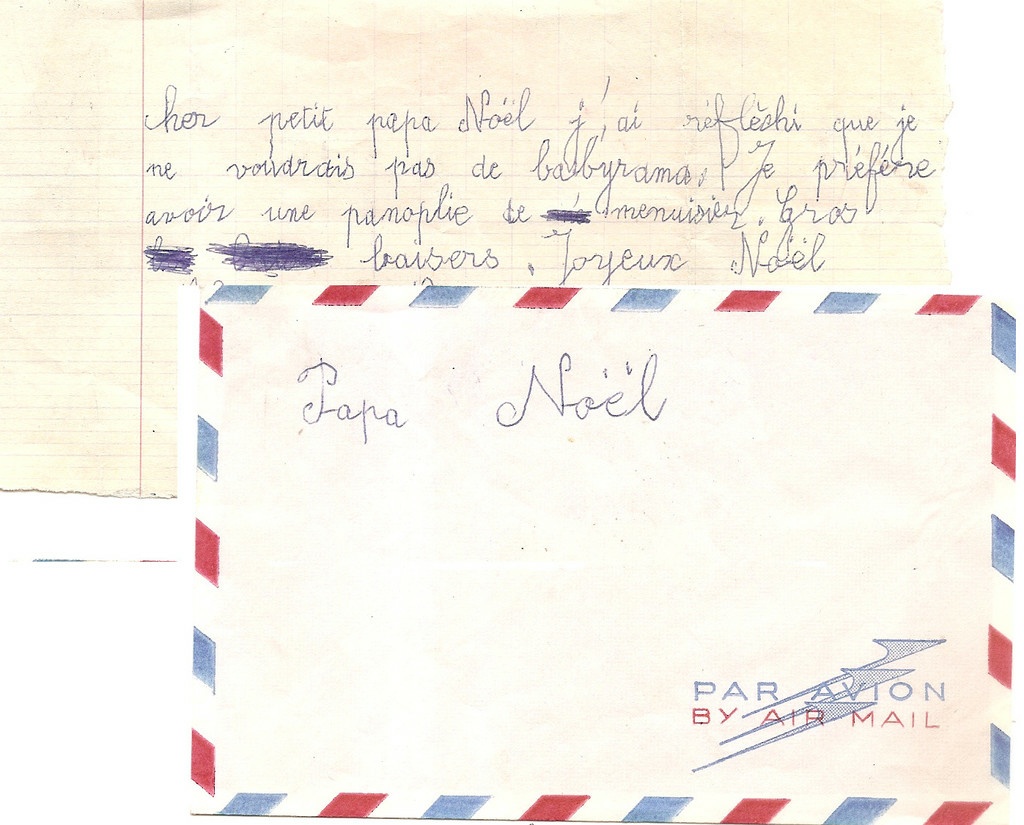 cher petit papa Noël j'ai réfléchi que je
ne voudrais pas de barbyrama. Je préfére
avoir une panoplie de menuisier. Gros
baisers. Joyeux Noël
Papa Noël
PAR AVION
BY AIR MAIL